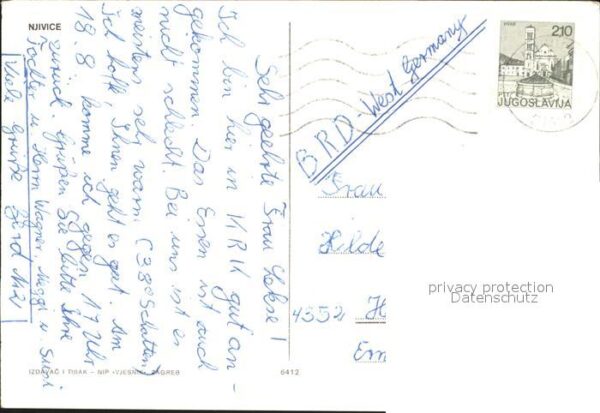 NJIVICE
Sehr geehrte Frau
Ich bin hier in KRK gut an-
gekommen. Das Essen ist auch
nicht schlecht. Bei uns ist es
meistens sehr warm (38° Schatten)
Ich hoffe Ihnen geht es gut. Am
18.8 komme ich gegen 17 Uhr
zurück. Grüßen Sie bitte Ihre
Tochter u. Herrn Wagner, Maggi u. Susi
Viele Grüße
BRD - West Germany
210
JUGOSLAVIJA
Frau
Hilde
4352 H
Em
privacy protection
Datenschutz
IZDAVAČ I TISAK – NIP «VJESNIK» ZAGREB
6412